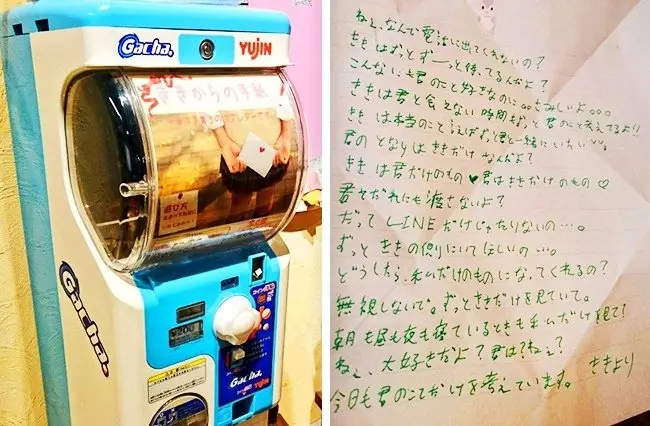 Gacha.
YUJIN
ききからの手紙
遊び方
Gacha.
200
Gacha.
YUJIN
ねぇ、なんで電話に出てくれないの?
ききはずっとずーっと待ってるんだよ?
こんなにも君のこと好きなのに。。さみしいよ。。。
ききは君と会えない時間もずっと君のこと考えてるよ!!
ききは本当のこと言えばずっと君と一緒にいたい
君のとなりはききだけなんだよ?
ききは君だけのもの♥君はききだけのもの♡
君をだれにも渡さないよ?
だってLINEだけじゃたりないの…。
ずっとききの側にいてほしいの…。
どうしたら、私だけのものになってくれるの?
無視しないで。ずっとききだけを見ていて。
朝も昼も夜も寝ているときも私だけを見て?
ねぇ、大好きだよ?君は?ねぇ?
今日も君のことだけを考えています。ききより